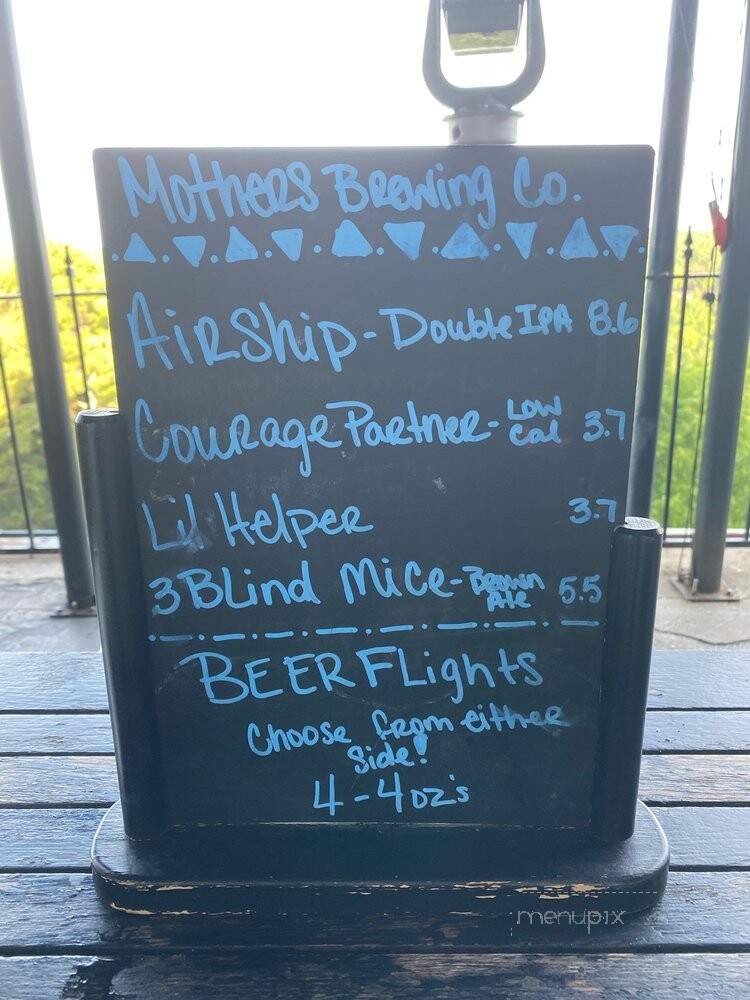 Mothers Brewing Co.
Airship - Double IPA 8.6
Courage Partner - Low Cal 3.7
Lil Helper 3.7
3 Blind Mice - Brown Ale 5.5
BEER FLights
Choose from either
side!
4 - 4oz's
menupix